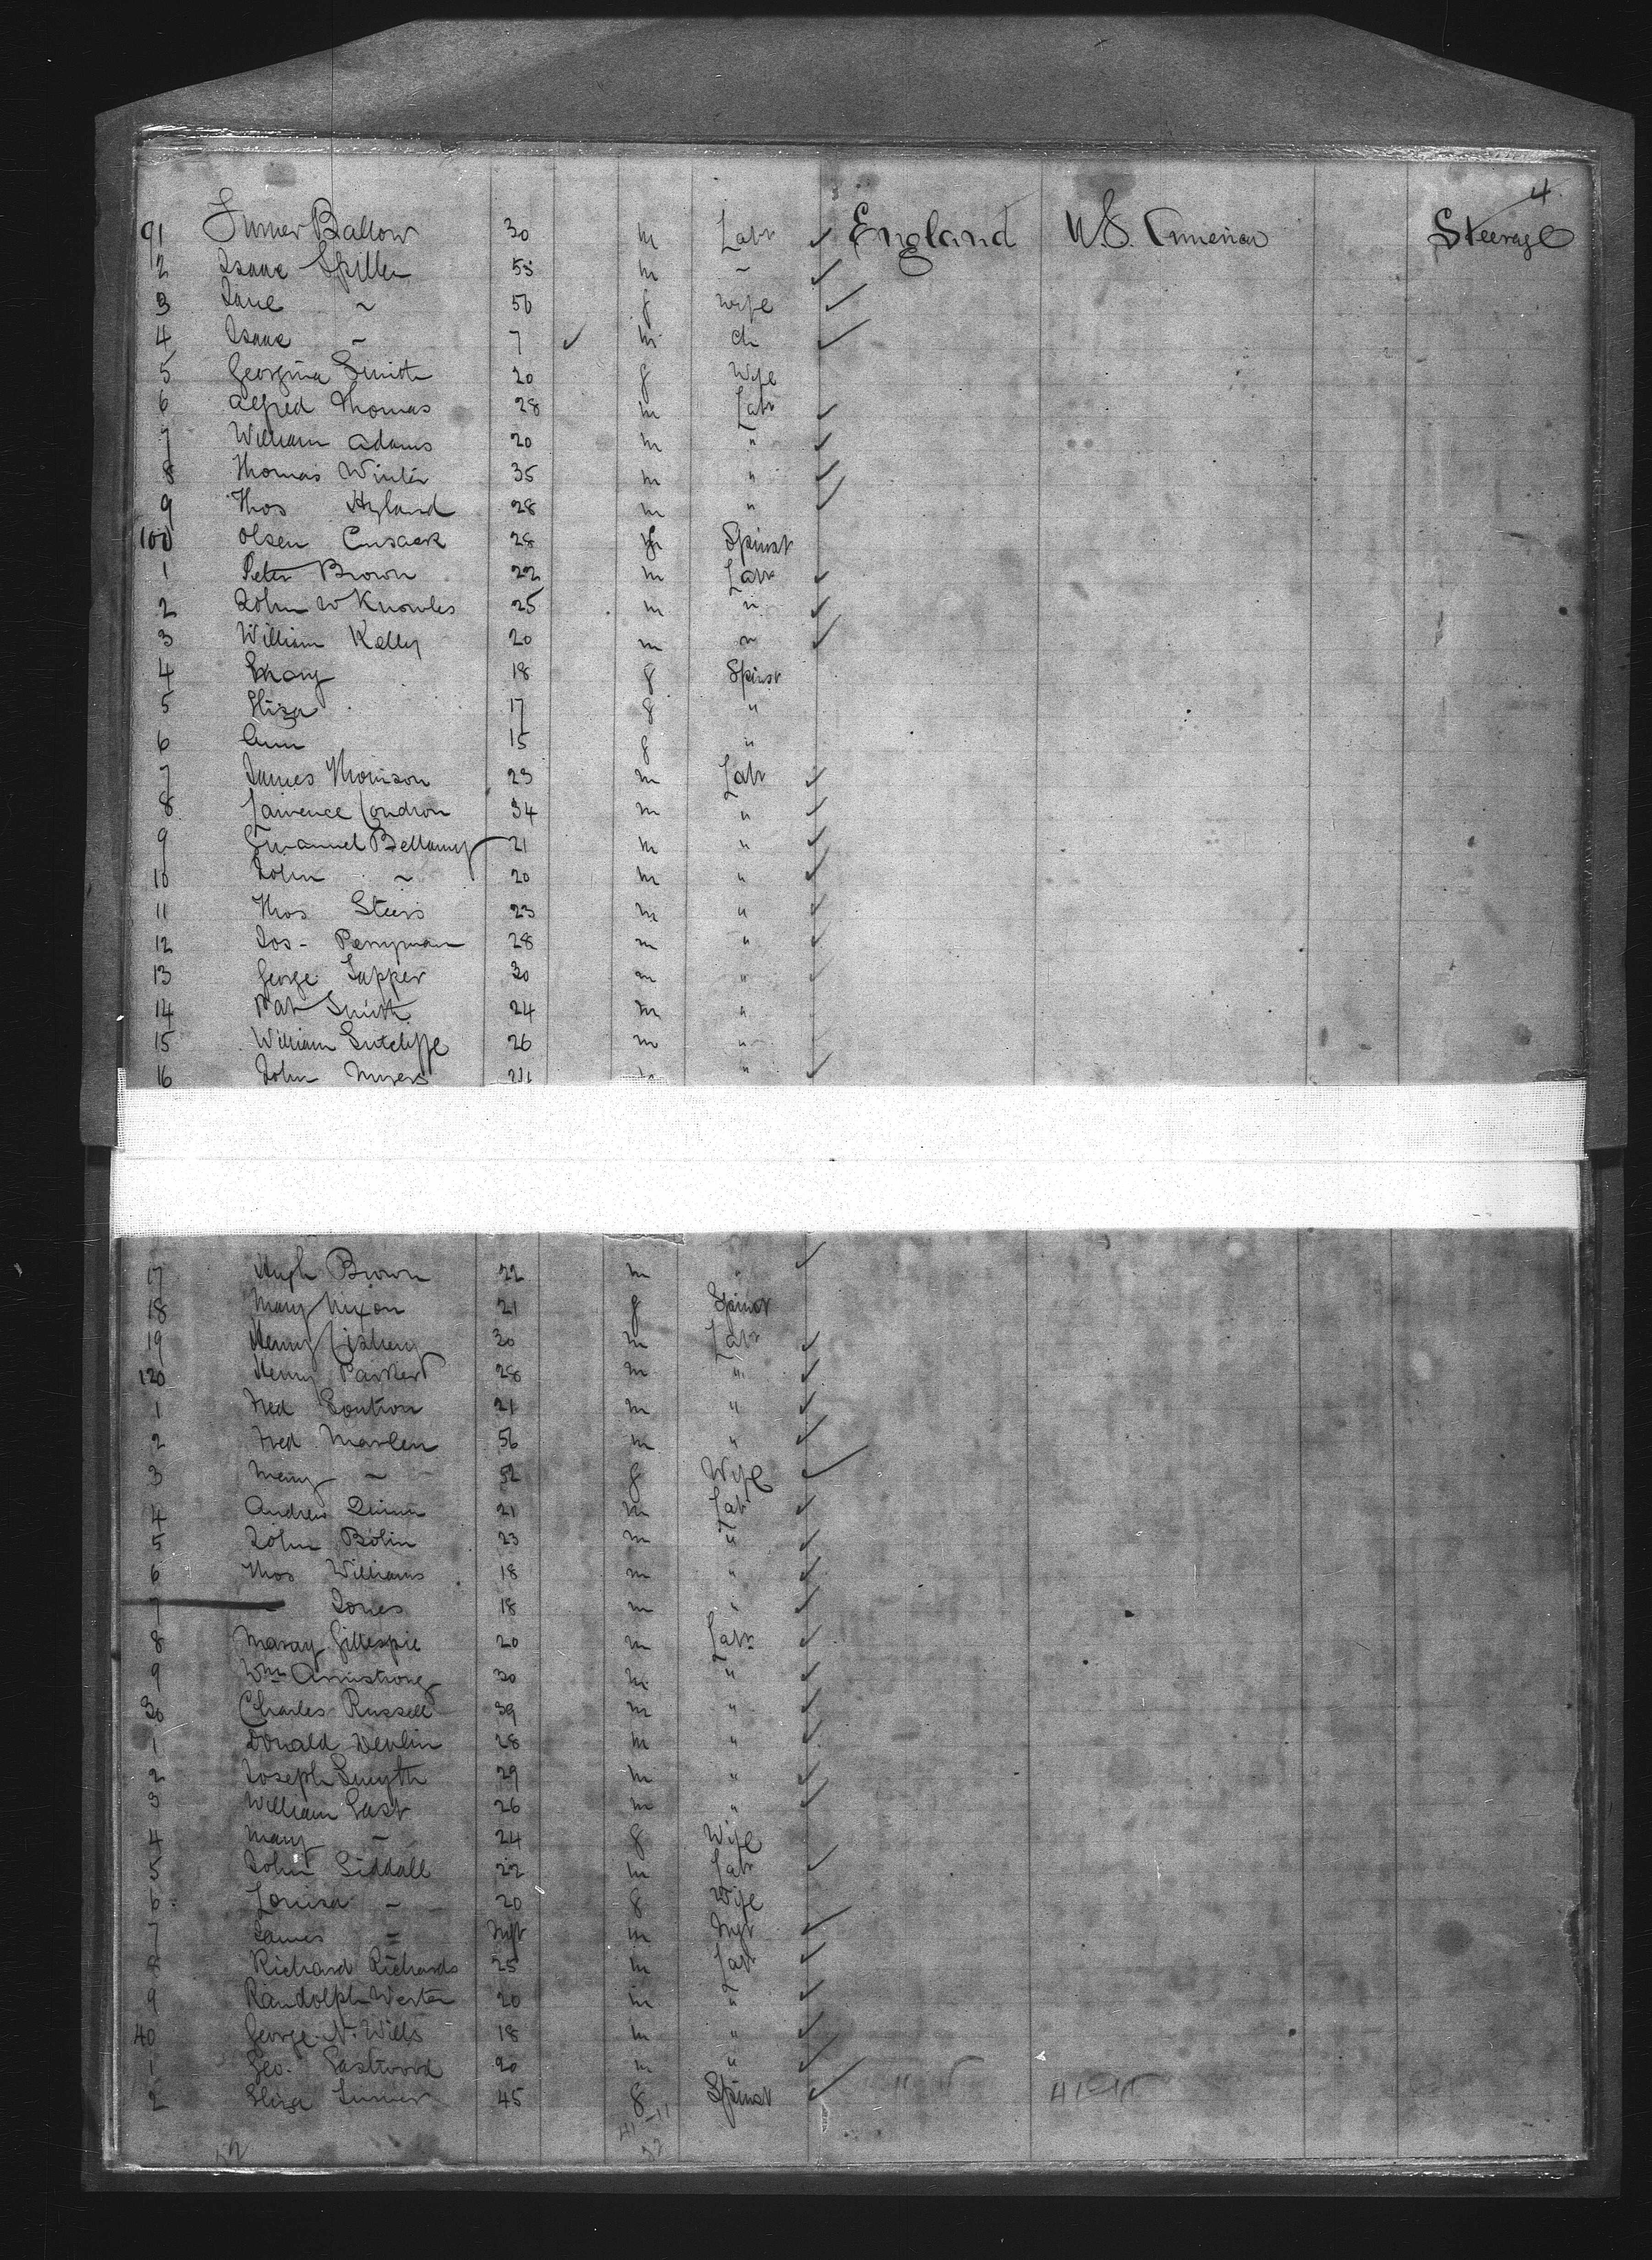 4
91 Turner Ballow 30 m Labr ✓ England U.S. America Steerage
2 Isaac Spiller 55 m ~ ✓
3 Jane ~ 50 f wife ✓
4 Isaac ~ 7 ✓ m ch ✓
5 Georgina Smith 20 f Wife
6 Alfred Thomas 28 m Labr ✓
7 William Adams 20 m " ✓
8 Thomas Winter 35 m " ✓
9 Thos Hyland 28 m " ✓
100 Olsen Cusack 28 f Spinst
1 Peter Brown 22 m Labr ✓
2 John W Knowles 25 m " ✓
3 William Kelly 20 m " ✓
4 Mary 18 f Spinst
5 Eliza 17 f "
6 Ann 15 f "
7 James Thomson 23 m Labr ✓
8 Lawrence Condron 34 m " ✓
9 Emanuel Bellamy 21 m " ✓
10 John ~ 20 m " ✓
11 Thos Steers 23 m " ✓
12 Jos - Perryman 28 m " ✓
13 George Tapper 30 m " ✓
14 Pat Smith 24 m "
15 William Sutcliffe 26 m "
16 John Myers m " ✓
17 Hugh Brown 22 m " ✓
18 Mary Nixon 21 f Spinst
19 Henry 30 m Labr ✓
120 Henry Parker 28 m " ✓
1 Fred 21 m " ✓
2 Fred Marlen 56 m " ✓
3 Mary ~ 52 f Wife ✓
4 Andrew Quinn 21 m Labr ✓
5 John Bolin 23 m " ✓
6 Thos Williams 18 m " ✓
7 - Jones 18 m " ✓
8 Gillespie 20 m Labr ✓
9 Wm Armstrong 30 m " ✓
30 Charles Russell 39 m " ✓
1 Donald Devlin 28 m " ✓
2 Joseph Smyth 29 m " ✓
3 William East 26 m " ✓
4 Mary ~ 24 f Wife
5 John Siddall 22 m Labr ✓
6 Louisa - 20 f Wife
7 James = Inft m Inft ✓
8 Richard Richards 25 m Labr ✓
9 Randolph Wester 20 m " ✓
40 George N. Wills 18 m " ✓
1 Geo. Eastwood 20 m " ✓
2 Eliza Turner 45 f Spinst ✓
41-11
52